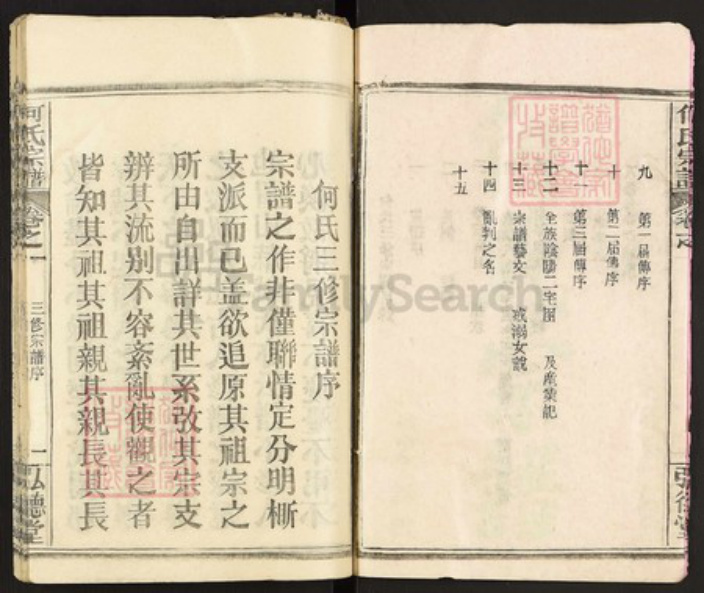 何氏宗譜
卷之一
弘德堂
九　第一屆傳序
十　第二屆傳序
十一　第三屆傳序
十二　全族陰陽二宅圖　及產業記
十三　宗譜藝文　戒溺女戒
十四　亂判之名
十五
何氏三修宗譜序
宗譜之作非僅聯情定分明
支派而已盖欲追原其祖宗之
所由自出詳其世系攷其宗支
辨其流别不容紊亂使觀之者
皆知其祖其祖親其親長其長
何氏宗譜
卷之一
三修宗譜序
一
弘德堂
FamilySearch